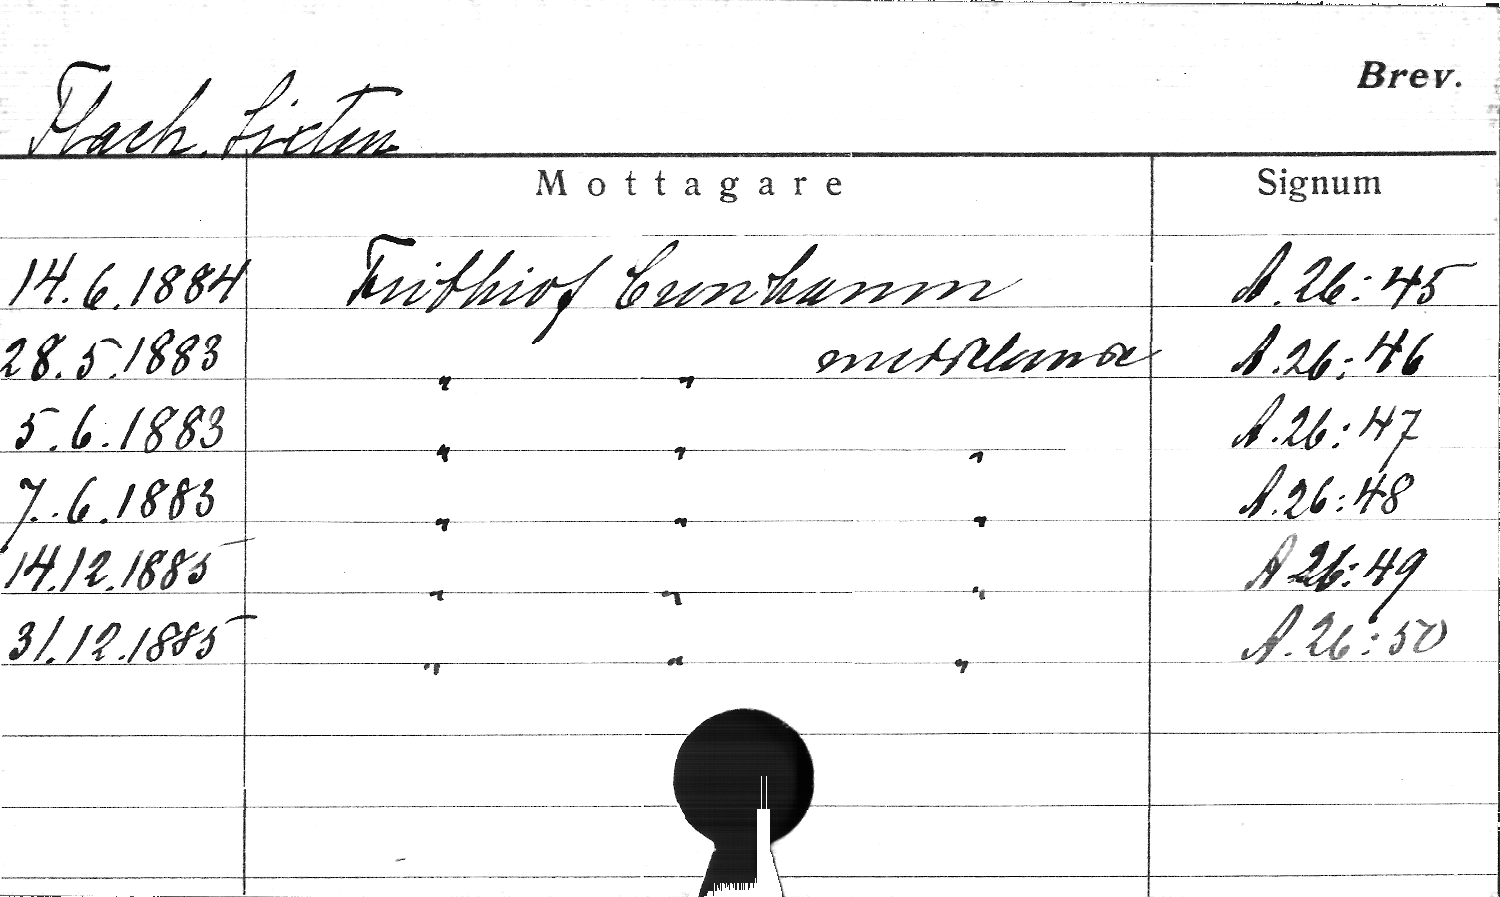 Brev.
Flach, Sixten
Mottagare Signum
14.6.1884 Frithiof Cronhamn A.26:45
28.5.1883 " " A.26:46
5.6.1883 " " " A.26:47
7.6.1883 " " " A.26:48
14.12.1885 " " " A 26:49
31.12.1885 " " " A.26:50